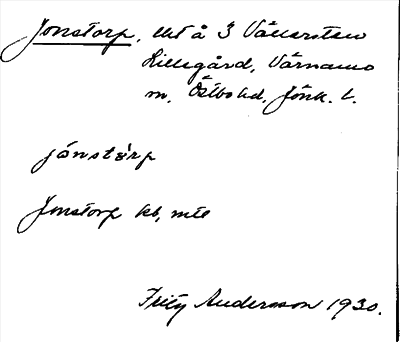 Jonstorp, lht å 3 Vällersten
Lillegård, Värnamo
m, Östbo hd, Jönk. l.
jónstòrp
Jonstorp kb, mtl
Fritz Andersson 1930.